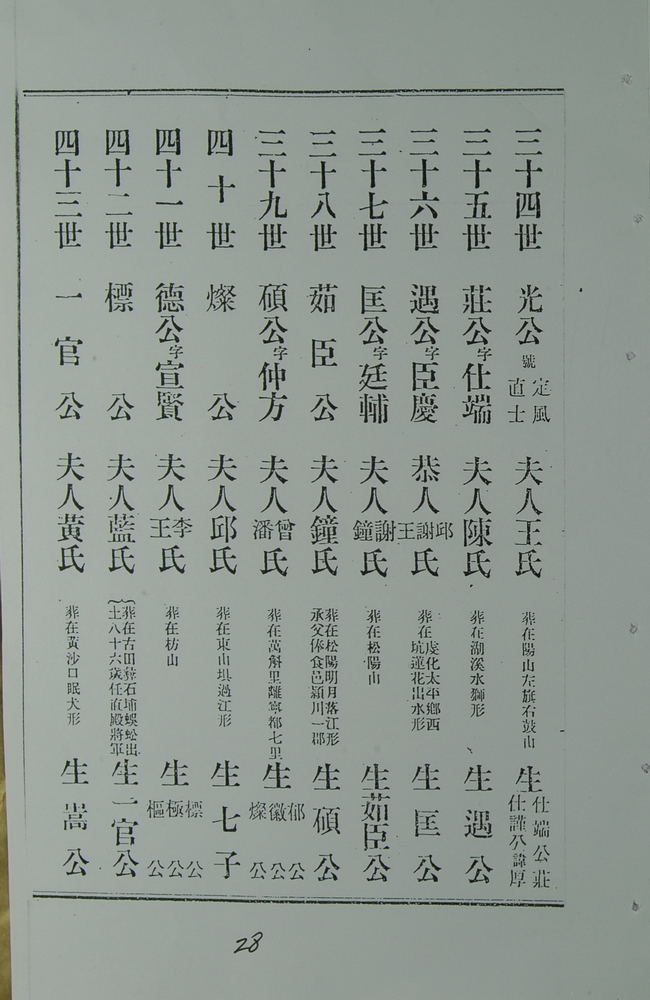 三十四世 光公 號 定風直士 夫人王氏 葬在陽山左旗右鼓山 生 仕端公莊 仕謹公諱厚
三十五世 莊公 字 仕端 夫人陳氏 葬在湖溪水獅形 生遇公
三十六世 遇公 字 臣慶 恭人 邱謝王 氏 葬在虔化太平鄉西坑蓮花出水形 生匡公
三十七世 匡公 字 廷輔 夫人 謝鐘 氏 葬在松陽山 生茹臣公
三十八世 茹臣公 夫人鐘氏 葬在松陽明月落江形 承父俸食邑穎川一郡 生碩公
三十九世 碩公 字 仲方 夫人 曾潘 氏 葬在萬斛里離寧都七里 生 郁公 徽公 燦公
四十世 燦公 夫人邱氏 葬在東山垻過江形 生七子
四十一世 德公 字 宣賢 夫人 李王 氏 葬在枋山 生 標公 極公 樞公
四十二世 標公 夫人藍氏 葬在古田蘇石埔蜈蚣出土八十六歲任直殿將軍 生一官公
四十三世 一官公 夫人黃氏 葬在黃沙口眠犬形 生嵩公
28